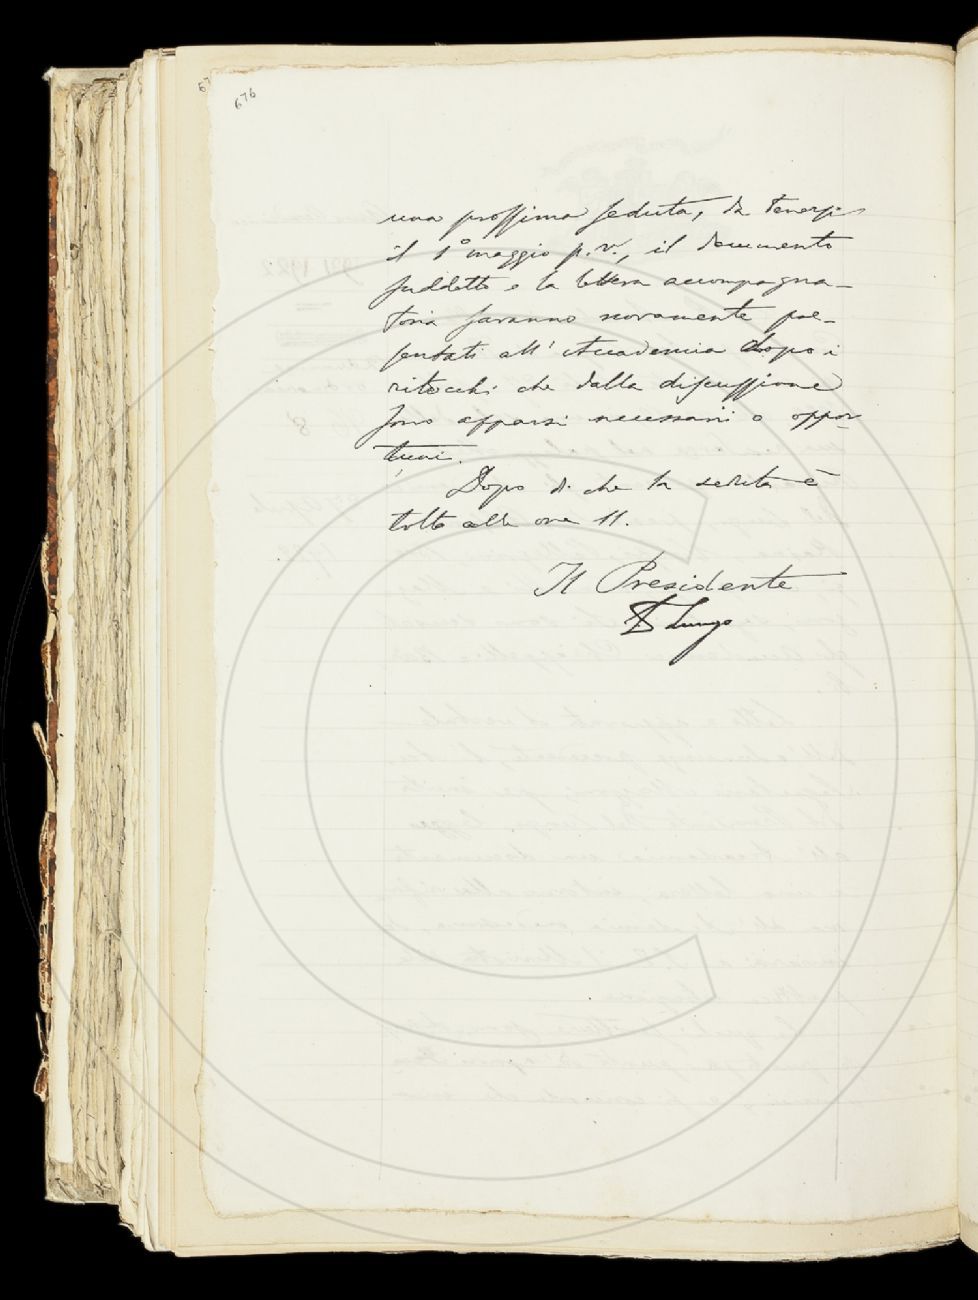 676
una prossima seduta, da tenersi
il 1° maggio p. v., il documento
suddetto e la lettera accompagna-
toria saranno novamente pre-
sentati all' Accademia dopo i
ritocchi che dalla discussione
sono apparsi necessarii o oppor-
tuni.
Dopo di che la seduta è
tolta alle ore 11.
Il Presidente
Lungo